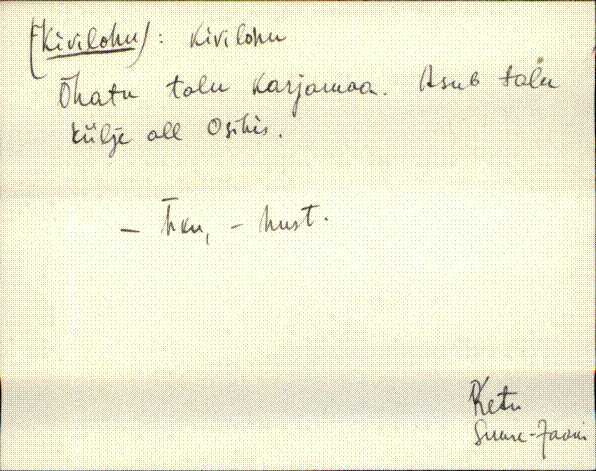 (Kivilohu): Kivilohu
Õhatu talu karjamaa. Asub talu
külje all Osihis.
– hu, – hust.
Retu
Suure-Jaani